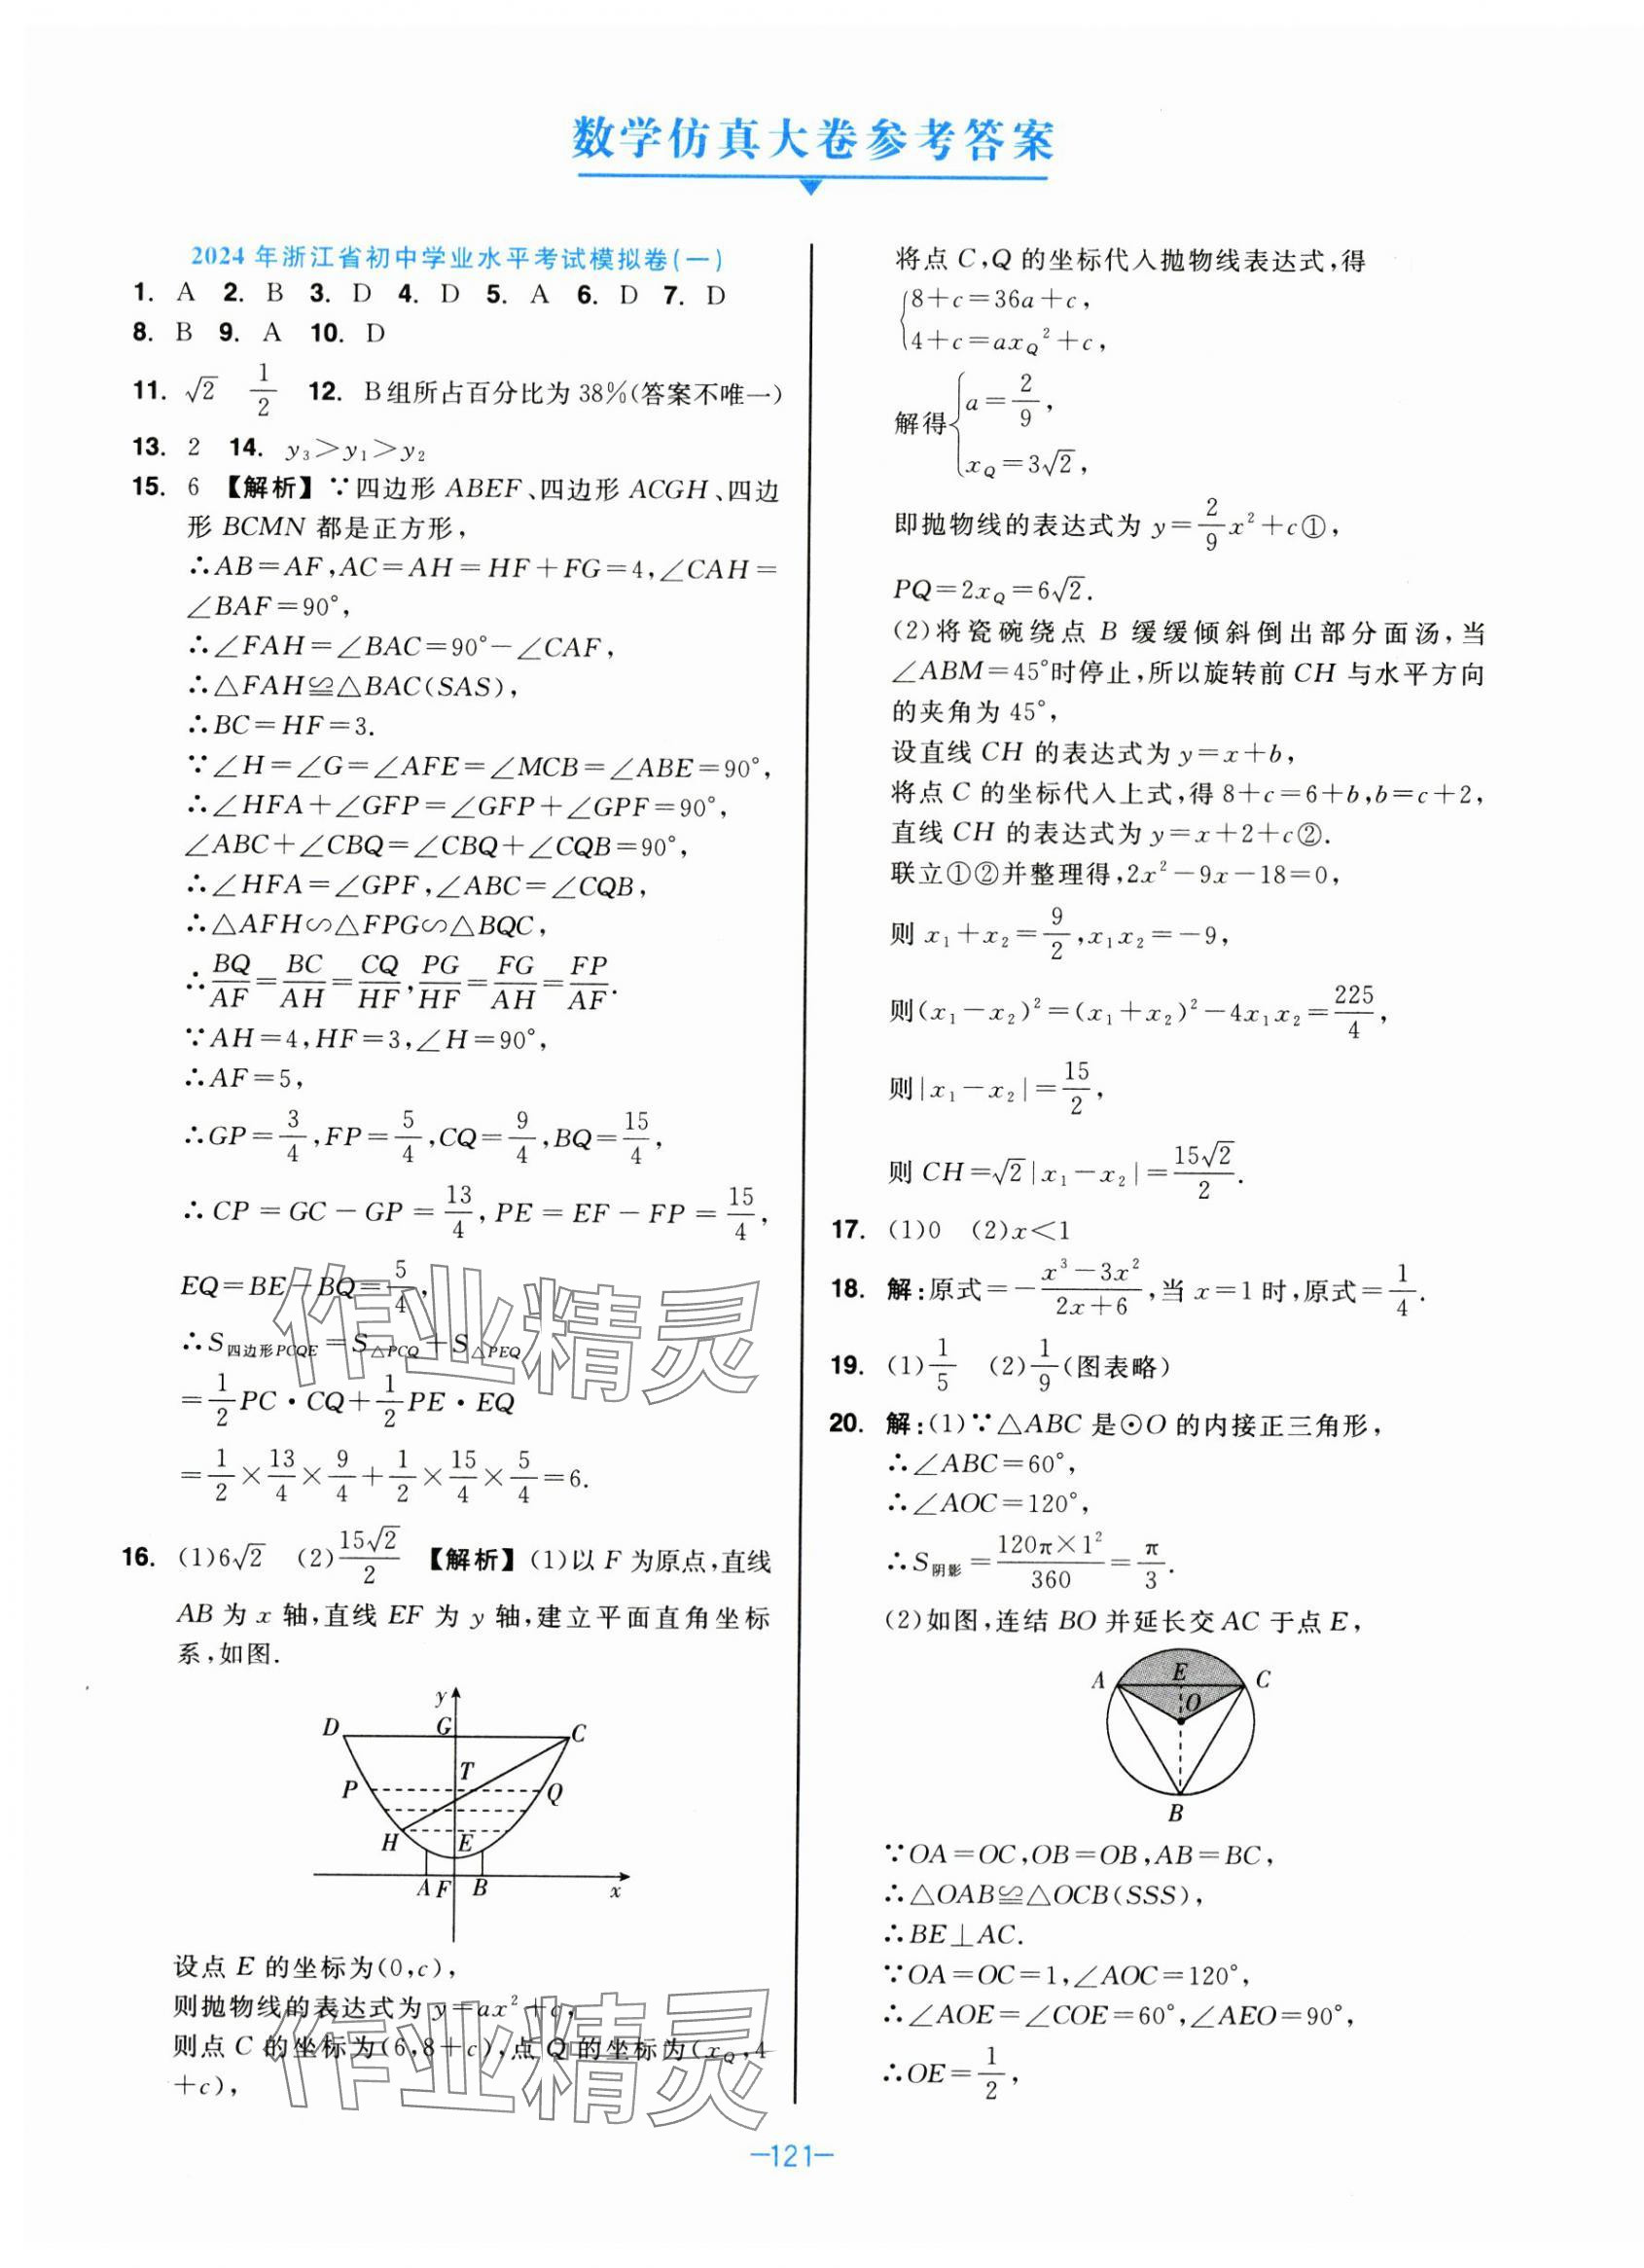 数学仿真大卷参考答案
2024年浙江省初中学业水平考试模拟卷(一)
1. A 2. B 3. D 4. D 5. A 6. D 7. D
8. B 9. A 10. D
11. √2 1/2 12. B组所占百分比为38%(答案不唯一)
13. 2 14. y₃>y₁>y₂
15. 6 【解析】∵四边形ABEF、四边形ACGH、四边
形BCMN都是正方形,
∴AB=AF,AC=AH=HF+FG=4,∠CAH=
∠BAF=90°,
∴∠FAH=∠BAC=90°-∠CAF,
∴△FAH≌△BAC(SAS),
∴BC=HF=3.
∵∠H=∠G=∠AFE=∠MCB=∠ABE=90°,
∴∠HFA+∠GFP=∠GFP+∠GPF=90°,
∠ABC+∠CBQ=∠CBQ+∠CQB=90°,
∴∠HFA=∠GPF,∠ABC=∠CQB,
∴△AFH∽△FPG∽△BQC,
∴BQ/AF=BC/AH=CQ/HF,PG/HF=FG/AH=FP/AF.
∵AH=4,HF=3,∠H=90°,
∴AF=5,
∴GP=3/4,FP=5/4,CQ=9/4,BQ=15/4,
∴CP=GC-GP=13/4,PE=EF-FP=15/4,
EQ=BE-BQ=5/4,
∴S四边形PCQE=S△PCQ+S△PEQ
=1/2PC·CQ+1/2PE·EQ
=1/2×13/4×9/4+1/2×15/4×5/4=6.
16. (1)6√2 (2)15√2/2 【解析】(1)以F为原点,直线
AB为x轴,直线EF为y轴,建立平面直角坐标
系,如图.
y
D G C
T
P Q
H E
A F B x
设点E的坐标为(0,c),
则抛物线的表达式为y=ax²+c,
则点C的坐标为(6,8+c),点Q的坐标为(x_Q,4
+c),
将点C,Q的坐标代入抛物线表达式,得
{8+c=36a+c,
4+c=ax_Q²+c,
解得{a=2/9,
x_Q=3√2,
即抛物线的表达式为y=2/9x²+c①,
PQ=2x_Q=6√2.
(2)将瓷碗绕点B缓缓倾斜倒出部分面汤,当
∠ABM=45°时停止,所以旋转前CH与水平方向
的夹角为45°,
设直线CH的表达式为y=x+b,
将点C的坐标代入上式,得8+c=6+b,b=c+2,
直线CH的表达式为y=x+2+c②.
联立①②并整理得,2x²-9x-18=0,
则x₁+x₂=9/2,x₁x₂=-9,
则(x₁-x₂)²=(x₁+x₂)²-4x₁x₂=225/4,
则|x₁-x₂|=15/2,
则CH=√2|x₁-x₂|=15√2/2.
17. (1)0 (2)x<1
18. 解:原式=-(x³-3x²)/(2x+6),当x=1时,原式=1/4.
19. (1)1/5 (2)1/9(图表略)
20. 解:(1)∵△ABC是⊙O的内接正三角形,
∴∠ABC=60°,
∴∠AOC=120°,
∴S阴影=120π×1²/360=π/3.
(2)如图,连结BO并延长交AC于点E,
A E C
O
B
∵OA=OC,OB=OB,AB=BC,
∴△OAB≌△OCB(SSS),
∴BE⊥AC.
∵OA=OC=1,∠AOC=120°,
∴∠AOE=∠COE=60°,∠AEO=90°,
∴OE=1/2,
作业精灵
作业精灵
—121—